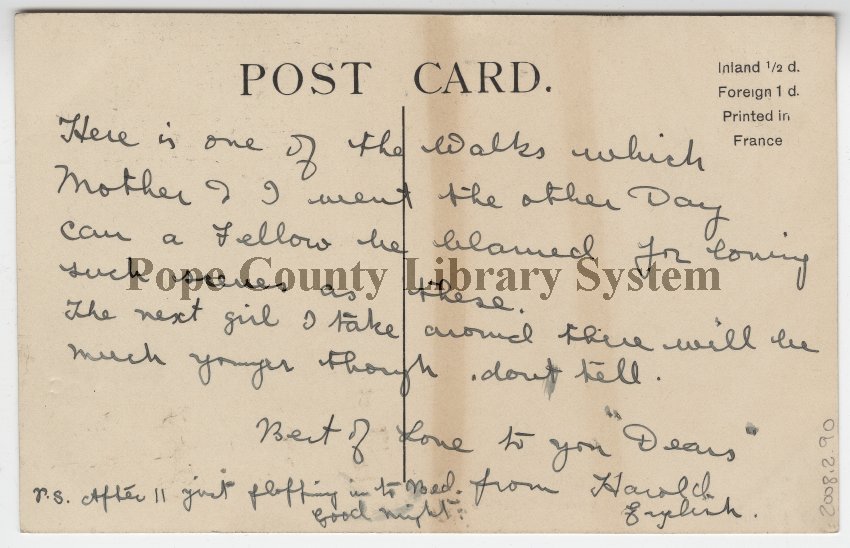 POST CARD.
Inland 1/2 d.
Foreign 1 d.
Printed in
France
Here is one of the Walks which
Mother & I went the other Day
can a Fellow be blamed for loving
such scenes as these.
The next girl I take around there will be
much yonger though. dont tell.
Best of Love to you "Dears"
P.S. After 11 just flopping in to Bed.
Good night.
from Harold
English.
Pope County Library System
2008.2.90